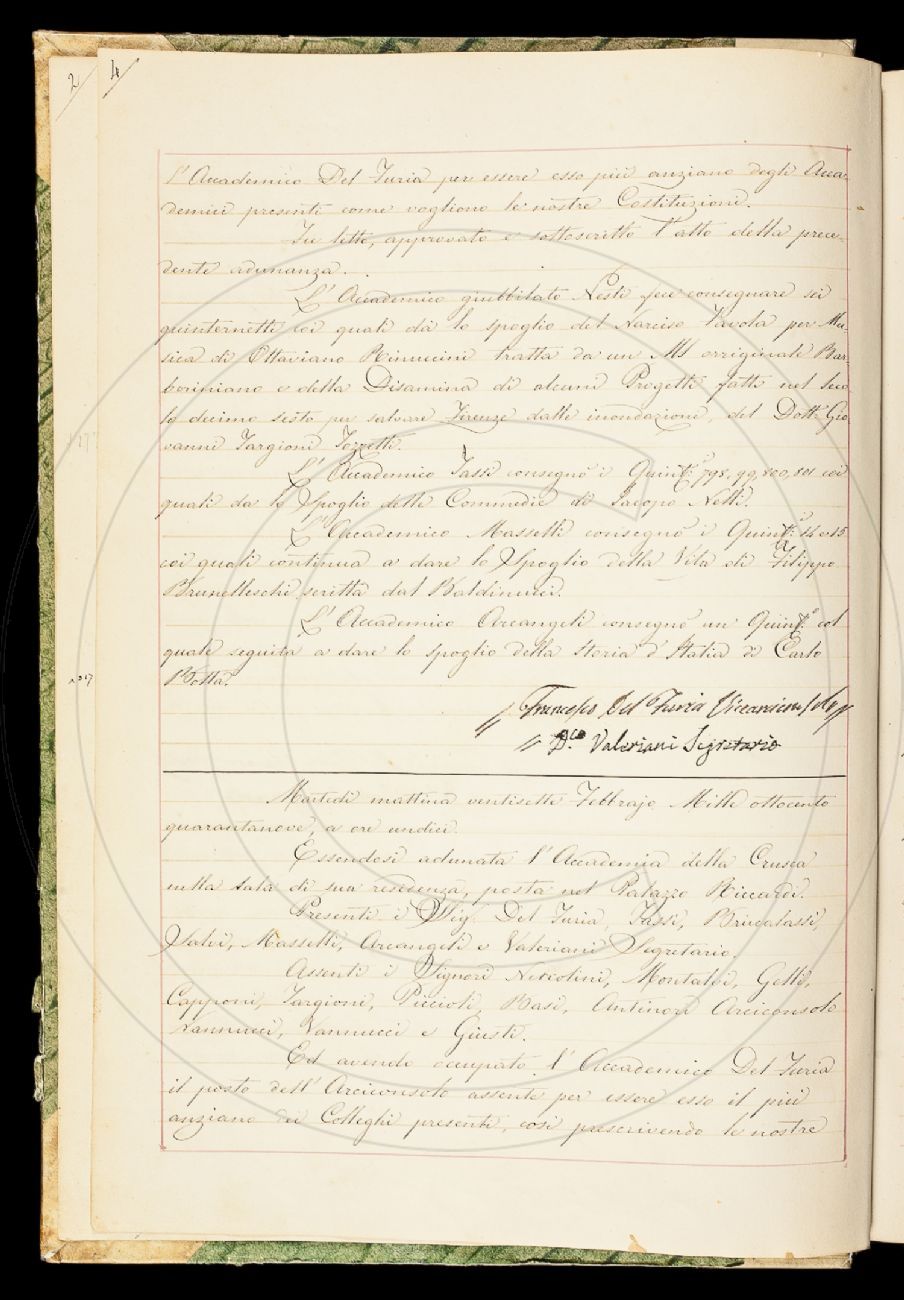 2
4
l'Accademico Del Furia per essere esso più anziano degli Acca-
demici presenti come vogliono le nostre Costituzioni.
Fu letto, approvato e sottoscritto l'atto della prece-
dente adunanza.
L'Accademico giubbilato Nesti fece consegnare sei
quinternetti coi quali dà lo spoglio del Narciso Favola per Mu-
sica di Ottaviano Rinuccini tratta da un Ms originale Bar-
beriniano e della Disamina di alcuni Progetti fatti nel Seco
lo decimo sesto per salvare Firenze dalle inondazioni, del Dott. Gio
vanni Targioni Tozzetti.
L'Accademico Tassi consegnò i Quint.i 798, 99, 800, 801 coi
quali da lo Spoglio delle Commedie di Jacopo Nelli.
L'Accademico Masselli consegnò i Quint.i 14 e 15
coi quali continua a dare lo Spoglio della Vita di Filippo
Brunelleschi scritta dal Baldinucci.
L'Accademico Arcangeli consegnò un Quint.o col
quale seguita a dare lo spoglio della Storia d'Italia di Carlo
Botta.
// Francesco Del Furia //
// D.co Valeriani Segretario
Martedì mattina ventisette Febbrajo Mille ottocento
quarantanove, a ore undici.
Essendosi adunata l'Accademia della Crusca
nella Sala di sua residenza, posta nel Palazzo Riccardi.
Presenti i Sig.i Del Furia, Tassi, Brucalassi,
Salvi, Masselli, Arcangeli e Valeriani Segretario.
Assenti i Signori Niccolini, Montalvi, Gelli,
Capponi, Targioni, Piccioli, Basi, Antinori Arciconsolo
Nannucci, Vannucci e Giusti.
Ed avendo occupato l'Accademico Del Furia
il posto dell'Arciconsolo assente per essere esso il più
anziano dei Colleghi presenti, così prescrivendo le nostre